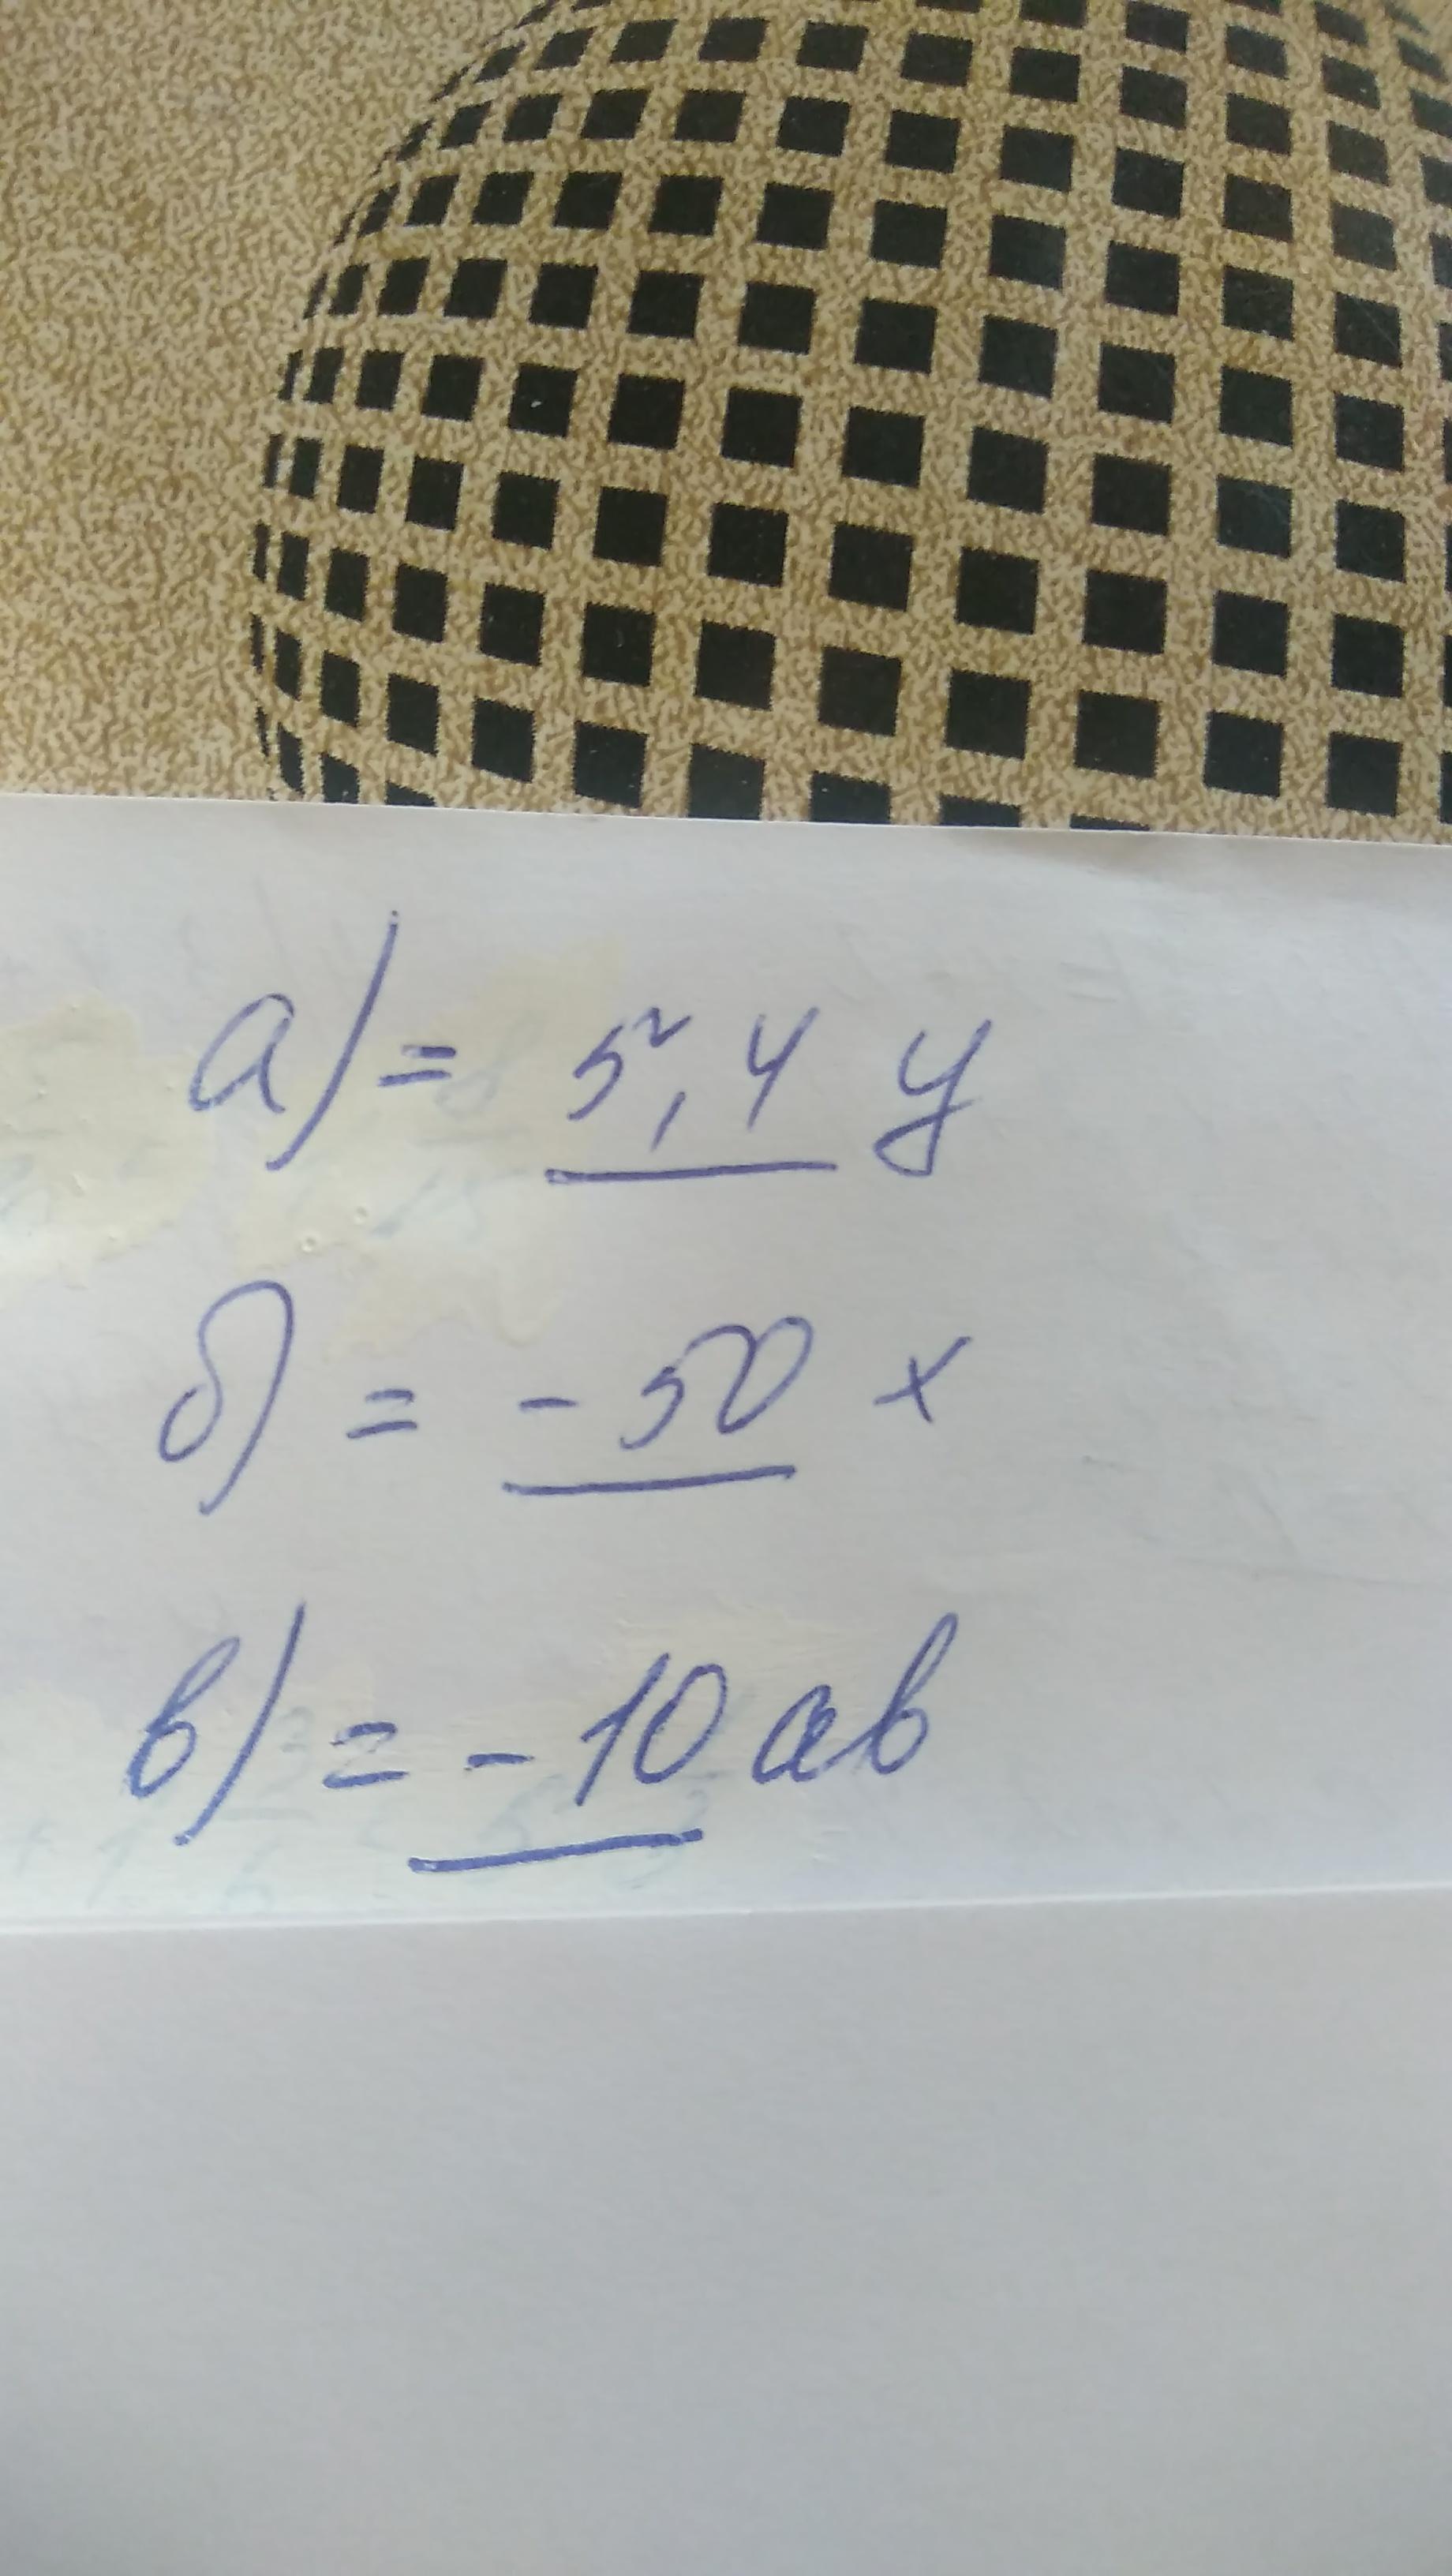 а) = 5,4 y
б) = - 50 x
в) = - 10 ab